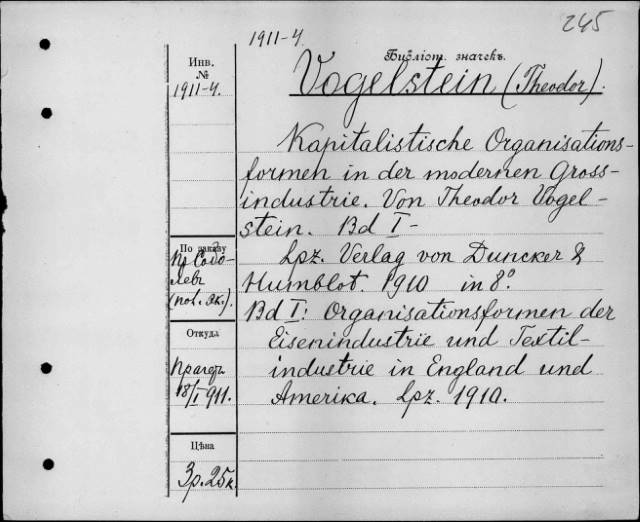 245
1911-4.
Библіот. значекъ.
Инв.
№
1911-4.
Vogelstein (Theodor).
Kapitalistische Organisations-
formen in der modernen Gross-
industrie. Von Theodor Vogel-
stein. Bd I-
По заказу
Lpz. Verlag von Duncker &
Humblot. 1910 in 8°.
Bd I: Organisationsformen der
Eisenindustrie und Textil-
industrie in England und
Amerika. Lpz. 1910.
Пр. Собо-
левъ
(пол. эк.).
Откуда
18/I 911.
Цѣна
3р.25к.